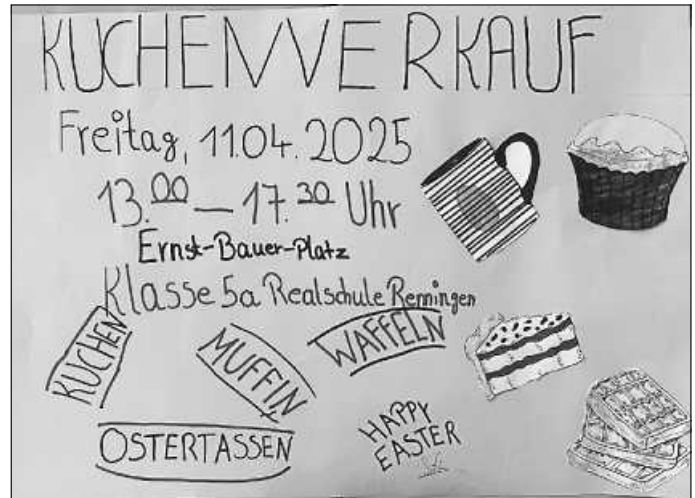 KUCHENVERKAUF
Freitag, 11.04.2025
13.00 — 17.30 Uhr
Ernst-Bauer-Platz
Klasse 5a Realschule Renningen
KUCHEN
MUFFIN
WAFFELN
OSTERTASSEN
HAPPY
EASTER